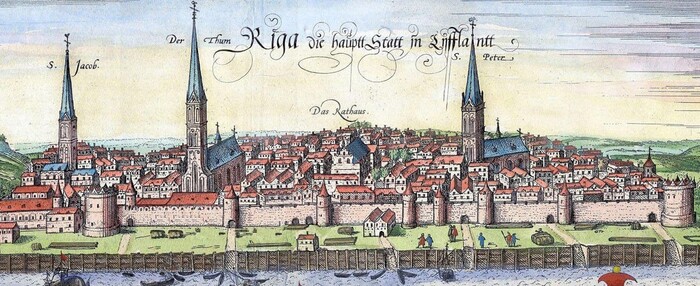 Riga die haupt Statt in Lyfflaintt
S. Jacob.
Der Thum
S. Peter.
Das Rathaus.